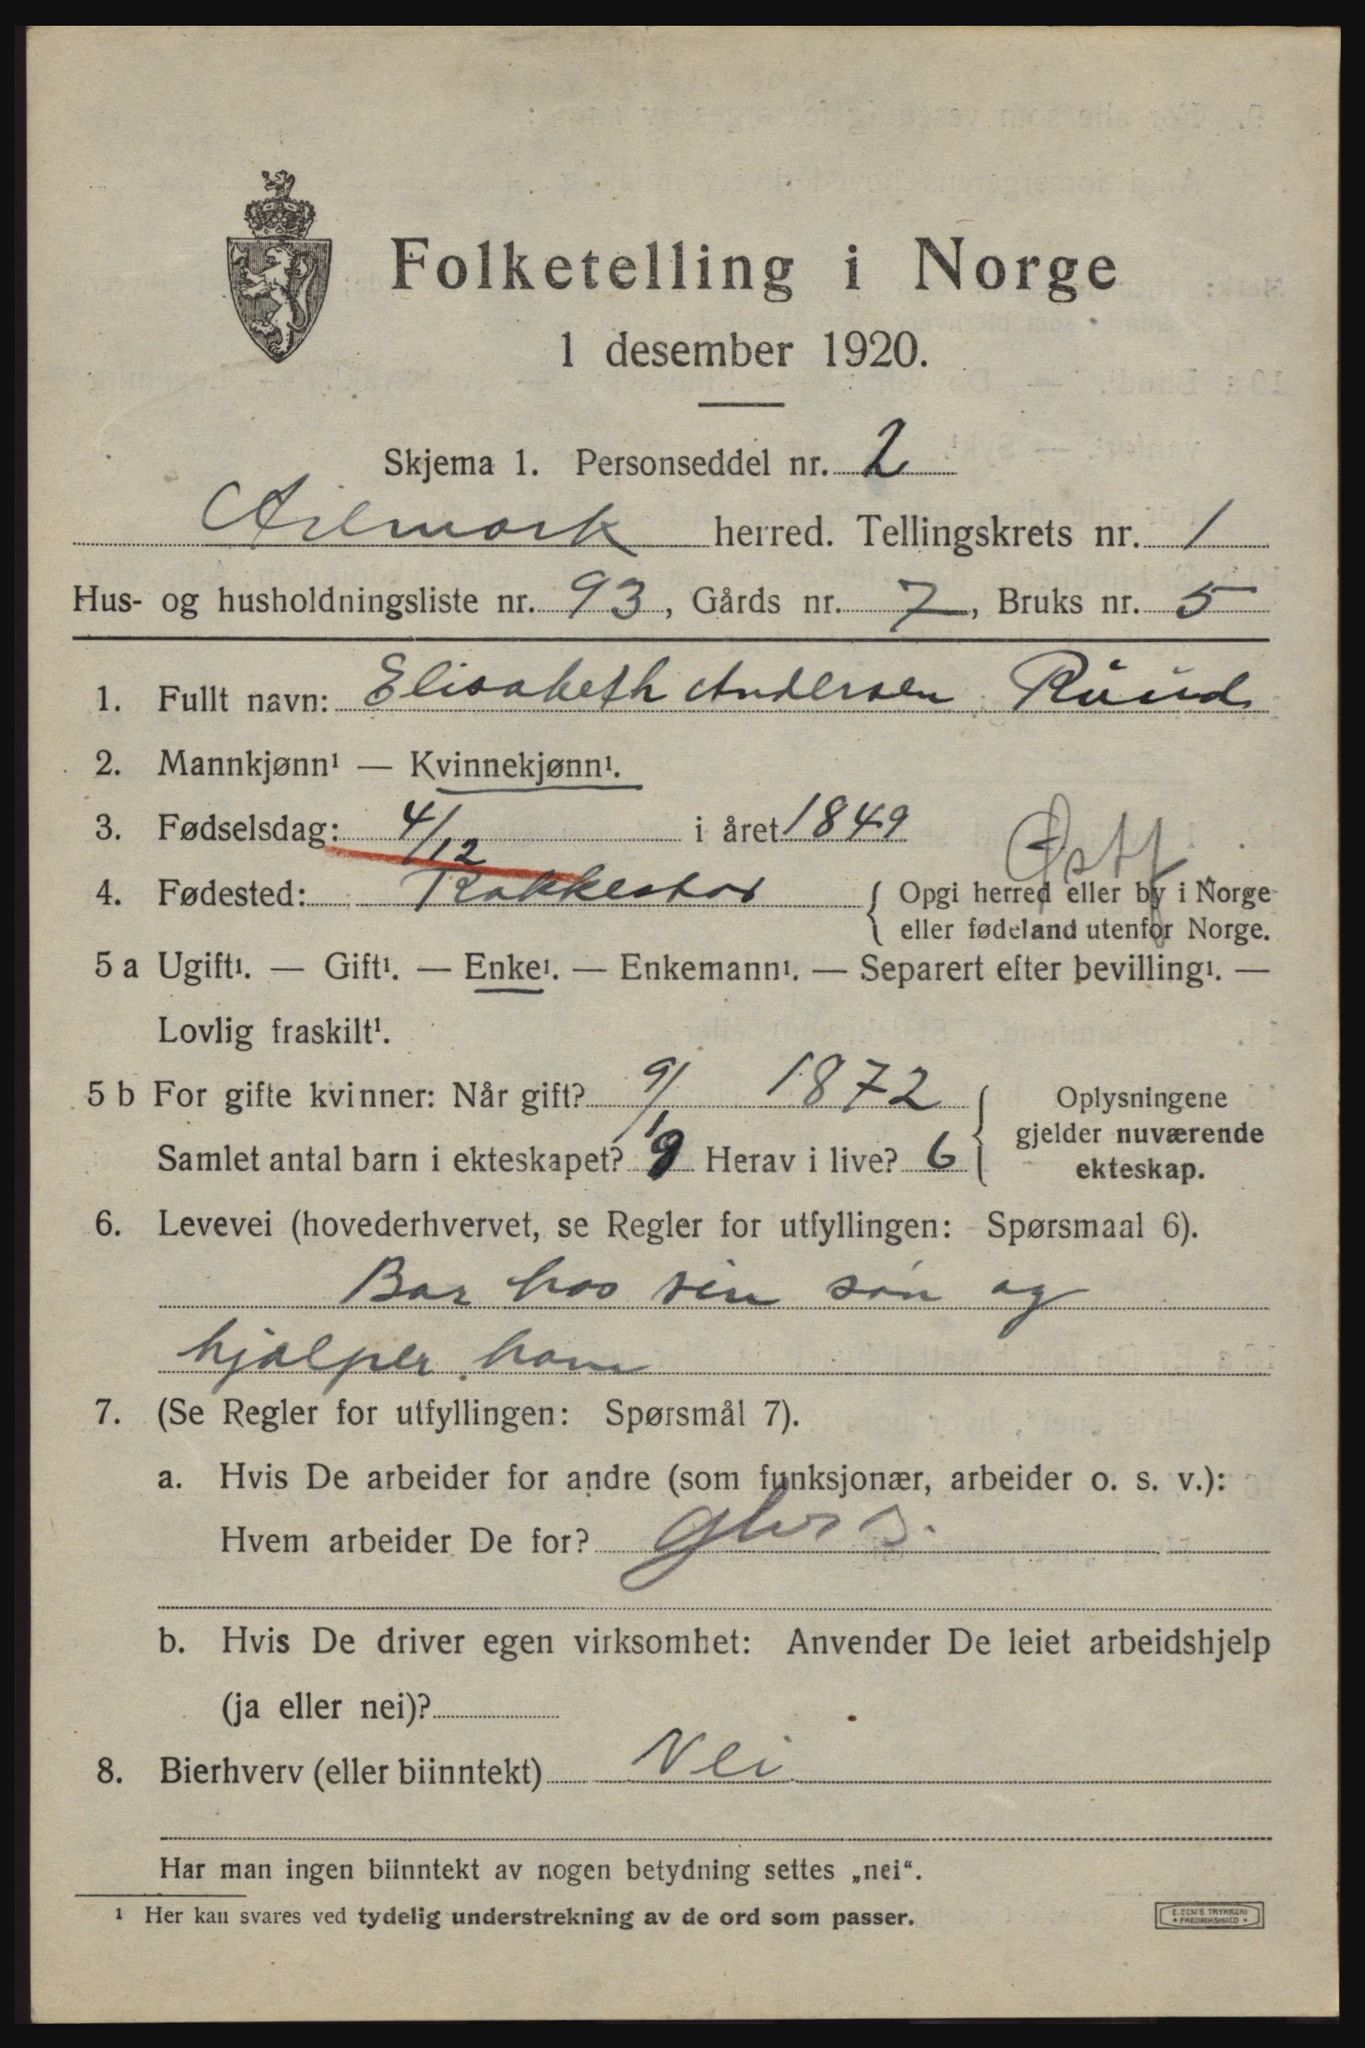 Folketelling i Norge
1 desember 1920.
Skjema 1. Personseddel nr. 2
Aremark herred. Tellingskrets nr. 1
Hus- og husholdningsliste nr. 93, Gårds nr. 7, Bruks nr. 5
1. Fullt navn: Elisabeth Andersen Ruud
2. Mannkjønn¹ — Kvinnekjønn¹.
3. Fødselsdag: 4/12 i året 1849
Østf
4. Fødested: Rakkestad { Opgi herred eller by i Norge
eller fødeland utenfor Norge.
5 a Ugift¹. — Gift¹. — Enke¹. — Enkemann¹. — Separert efter bevilling¹. —
Lovlig fraskilt¹.
5 b For gifte kvinner: Når gift? 9/1 1872
Samlet antal barn i ekteskapet? 9 Herav i live? 6
{ Oplysningene
gjelder nuværende
ekteskap.
6. Levevei (hovederhvervet, se Regler for utfyllingen: Spørsmaal 6).
Bor hos sin søn og
hjælper ham
7. (Se Regler for utfyllingen: Spørsmål 7).
a. Hvis De arbeider for andre (som funksjonær, arbeider o. s. v.):
Hvem arbeider De for?
b. Hvis De driver egen virksomhet: Anvender De leiet arbeidshjelp
(ja eller nei)?
8. Bierhverv (eller biinntekt) Nei
Har man ingen biinntekt av nogen betydning settes „nei“.
¹ Her kan svares ved tydelig understrekning av de ord som passer.
E. SEM'S TRYKKERI
* FREDRIKSHALD *